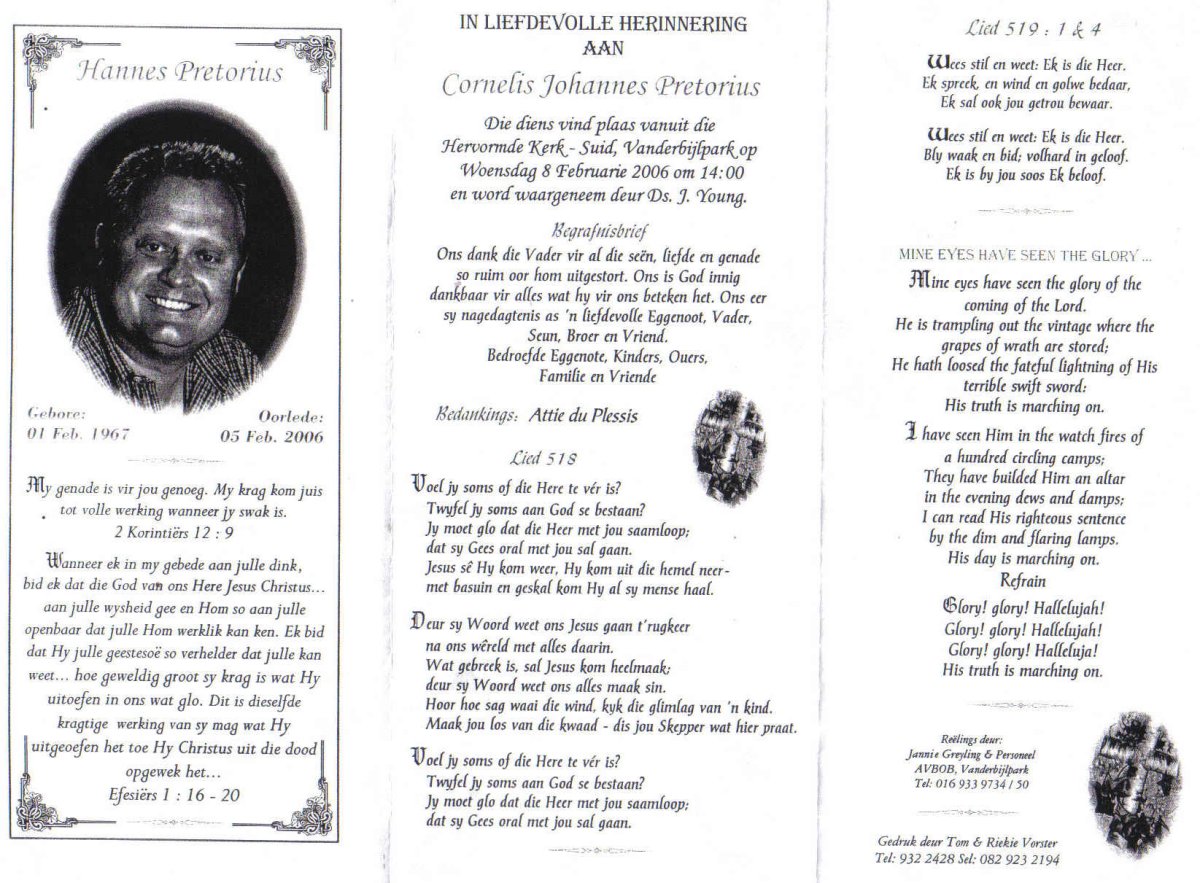 Hannes Pretorius
Gebore:
01 Feb. 1967
Oorlede:
05 Feb. 2006
My genade is vir jou genoeg. My krag kom juis
tot volle werking wanneer jy swak is.
2 Korintiërs 12 : 9
Wanneer ek in my gebede aan julle dink,
bid ek dat die God van ons Here Jesus Christus...
aan julle wysheid gee en Hom so aan julle
openbaar dat julle Hom werklik kan ken. Ek bid
dat Hy julle geestesoë so verhelder dat julle kan
weet... hoe geweldig groot sy krag is wat Hy
uitoefen in ons wat glo. Dit is dieselfde
kragtige werking van sy mag wat Hy
uitgeoefen het toe Hy Christus uit die dood
opgewek het...
Efesiërs 1 : 16 - 20
IN LIEFDEVOLLE HERINNERING
AAN
Cornelis Johannes Pretorius
Die diens vind plaas vanuit die
Hervormde Kerk - Suid, Vanderbijlpark op
Woensdag 8 Februarie 2006 om 14:00
en word waargeneem deur Ds. J. Young.
Begrafnisbrief
Ons dank die Vader vir al die seën, liefde en genade
so ruim oor hom uitgestort. Ons is God innig
dankbaar vir alles wat hy vir ons beteken het. Ons eer
sy nagedagtenis as 'n liefdevolle Eggenoot, Vader,
Seun, Broer en Vriend.
Bedroefde Eggenote, Kinders, Ouers,
Familie en Vriende
Bedankings: Attie du Plessis
Lied 518
Voel jy soms of die Here te vér is?
Twyfel jy soms aan God se bestaan?
Jy moet glo dat die Heer met jou saamloop;
dat sy Gees oral met jou sal gaan.
Jesus sê Hy kom weer, Hy kom uit die hemel neer-
met basuin en geskal kom Hy al sy mense haal.
Deur sy Woord weet ons Jesus gaan t'rugkeer
na ons wêreld met alles daarin.
Wat gebreek is, sal Jesus kom heelmaak;
deur sy Woord weet ons alles maak sin.
Hoor hoe sag waai die wind, kyk die glimlag van 'n kind.
Maak jou los van die kwaad - dis jou Skepper wat hier praat.
Voel jy soms of die Here te vér is?
Twyfel jy soms aan God se bestaan?
Jy moet glo dat die Heer met jou saamloop;
dat sy Gees oral met jou sal gaan.
Lied 519 : 1 & 4
Wees stil en weet: Ek is die Heer.
Ek spreek, en wind en golwe bedaar,
Ek sal ook jou getrou bewaar.
Wees stil en weet: Ek is die Heer.
Bly waak en bid; volhard in geloof.
Ek is by jou soos Ek beloof.
MINE EYES HAVE SEEN THE GLORY...
Mine eyes have seen the glory of the
coming of the Lord.
He is trampling out the vintage where the
grapes of wrath are stored;
He hath loosed the fateful lightning of His
terrible swift sword:
His truth is marching on.
I have seen Him in the watch fires of
a hundred circling camps;
They have builded Him an altar
in the evening dews and damps;
I can read His righteous sentence
by the dim and flaring lamps.
His day is marching on.
Refrain
Glory! glory! Hallelujah!
Glory! glory! Hallelujah!
Glory! glory! Halleluja!
His truth is marching on.
Reëlings deur:
Jannie Greyling & Personeel
AVBOB, Vanderbijlpark
Tel: 016 933 9734 / 50
Gedruk deur Tom & Riekie Vorster
Tel: 932 2428 Sel: 082 923 2194